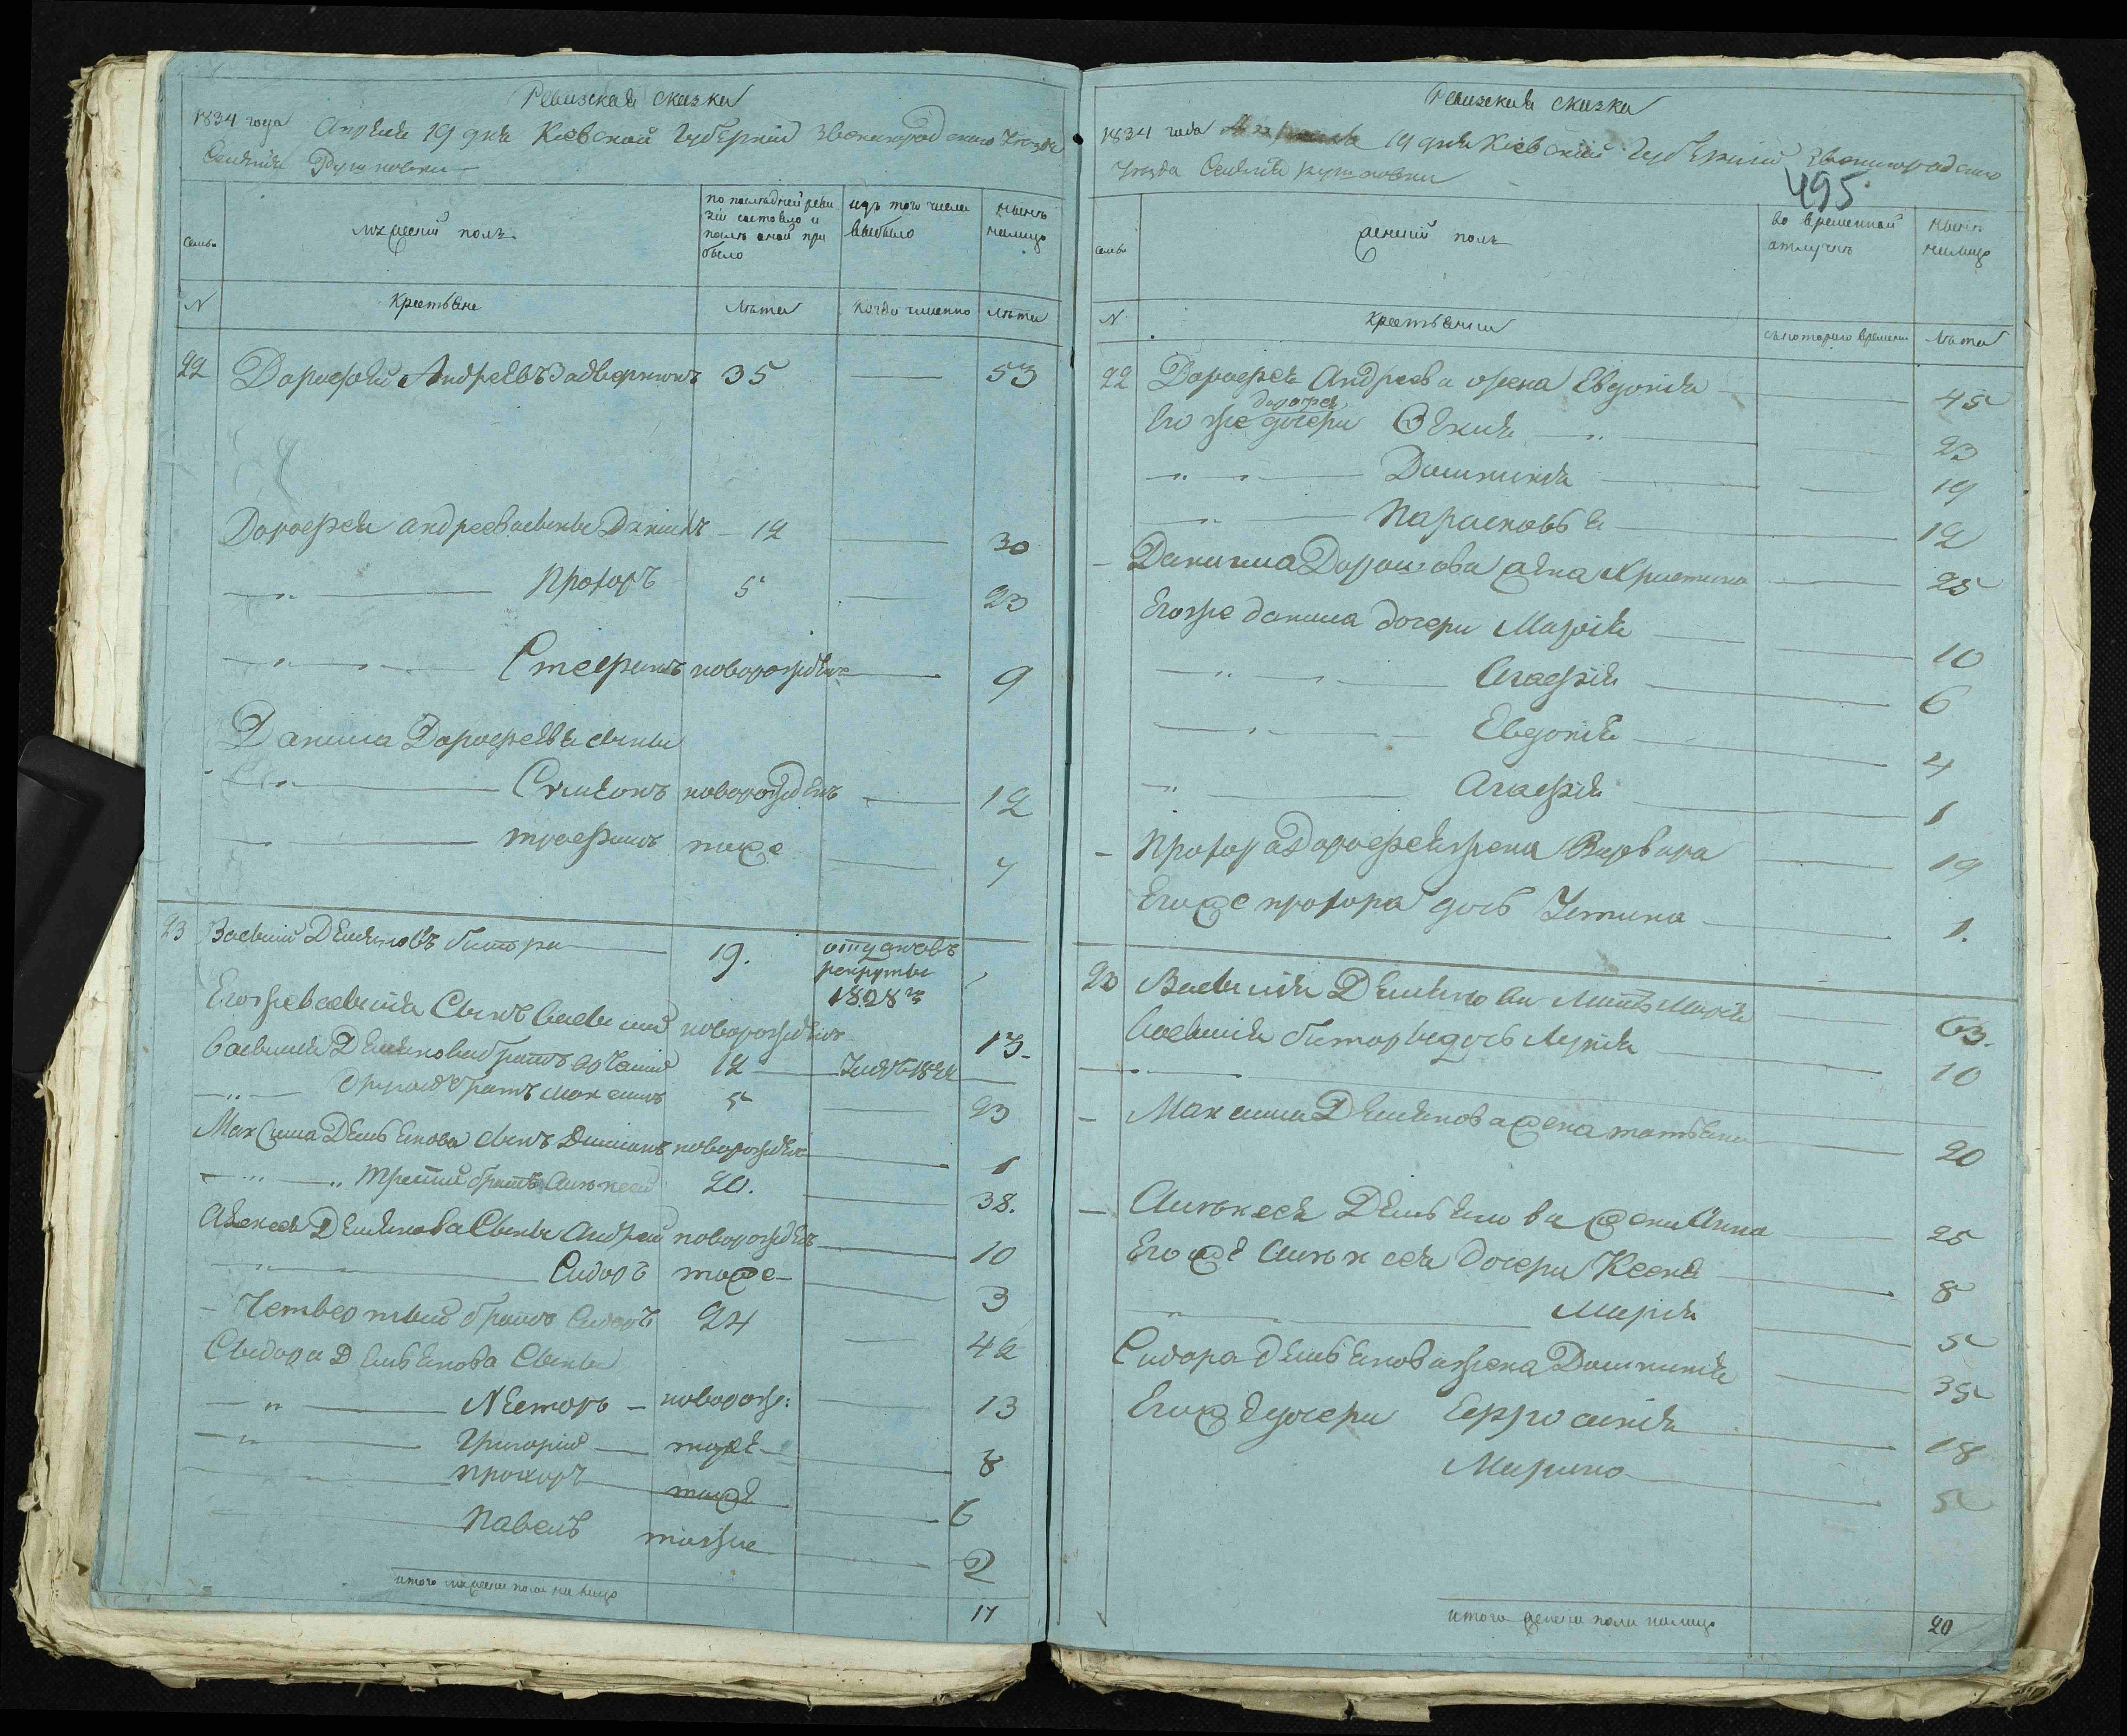 Ревизская сказка
1834 года Апреля 19 дня Киевской Губернии Звенигородскаго Уезда
Селения
семьи
мужеский полъ
по последней реви
зіи состояло и
после оной при
было
изъ того числа
выбыло
ныне
налицо
N
Крестьяне
Лета
когда именно
лета
22 Дорофей Андреевъ Задверникъ 35 53
Дорофея Андреева сыны Данило 12 30
Прохоръ 5 23
Стефанъ новорожденъ 9
Данила Дорофеева сыны
Симеонъ новорожденъ 12
Трофимъ тоже 7
23 Василий Демяновъ 19. отдан въ
рекруты
1828 го
Егоже Василия Сынъ Василий новорожденъ 13.
Василия Демянова братъ 12 1821
другой братъ Максимъ 5 23
Максима Демьянова сынъ Димианъ новорожденъ 1
Третий братъ Алексей 20. 38.
Алексея Демянова Сыны Андрей новорожденъ 10
Сидоръ тоже 3
Четвертый братъ Сидоръ 24 42
Сидора Демьянова Сыны
Нестеръ новорож: 13
Григорий тоже 8
Прохоръ тоже 6
Павелъ тоже 2
итого мужеска пола на лицо 17
Ревизская сказка
1834 года Апреля 19 дня Киевской Губернии Звенигородскаго
Уезда Селения
495
семьи
женский полъ
во временной
отлучке
ныне
налицо
N
Крестьянки
съ котораго времени
лета
22 Дорофея Андреева жена Евдокия 45
Дорофея
Его же дочери 23
Домникия 19
Парасковья 12
Данила Дорошова жена Христина 25
Егоже Данила дочери Мария 10
Агафия 6
Евдокия 4
Агафия 1
Прохора Дорофея жена Варвара 19
Егоже Прохора дочь Устина 1.
23 Василия Демянова Мать Мария 63.
Василия дочь 10
Максима Демянова жена Татьяна 20
Алексея Демьянова жена Анна 25
Егоже Алексея дочери Ксения 8
Мария 5
Сидора Демьянова жена Домникия 35
Егоже дочери Ефросиния 18
Марина 5
итого женска пола налицо 20